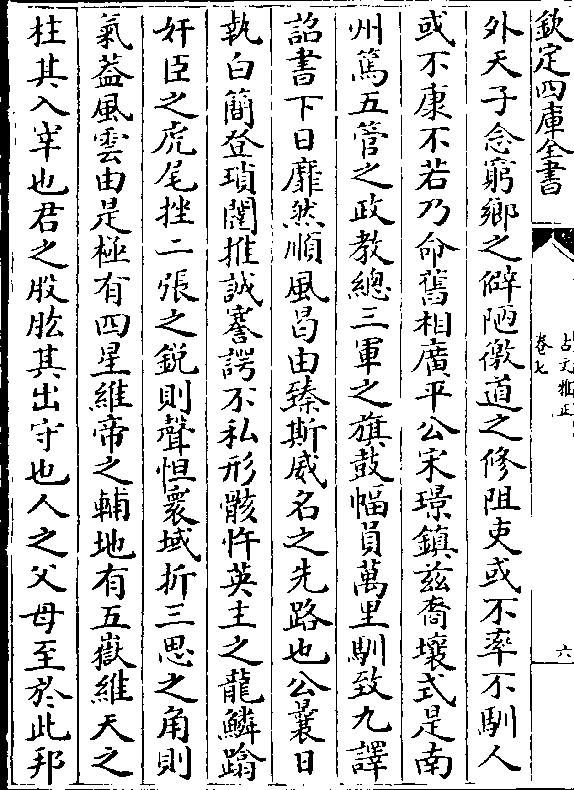 欽定四庫全書
古文雅正
卷七
六
外天子念窮鄉之僻陋徼道之修阻吏或不率不馴人
或不康不若乃命舊相廣平公宋璟鎮兹裔壤式是南
州篤五管之政教總三軍之旗鼓幅員萬里馴致九譯
詔書下日靡然順風曷由臻斯威名之先路也公曩日
執白簡登瑣闥推誠謇諤不私形骸忤英主之龍鱗蹈
奸臣之虎尾挫二張之銳則聲怛寰域折三思之角則
氣葢風雲由是極有四星維帝之輔地有五嶽維天之
柱其入宰也君之股肱其出守也人之父母至於此邦